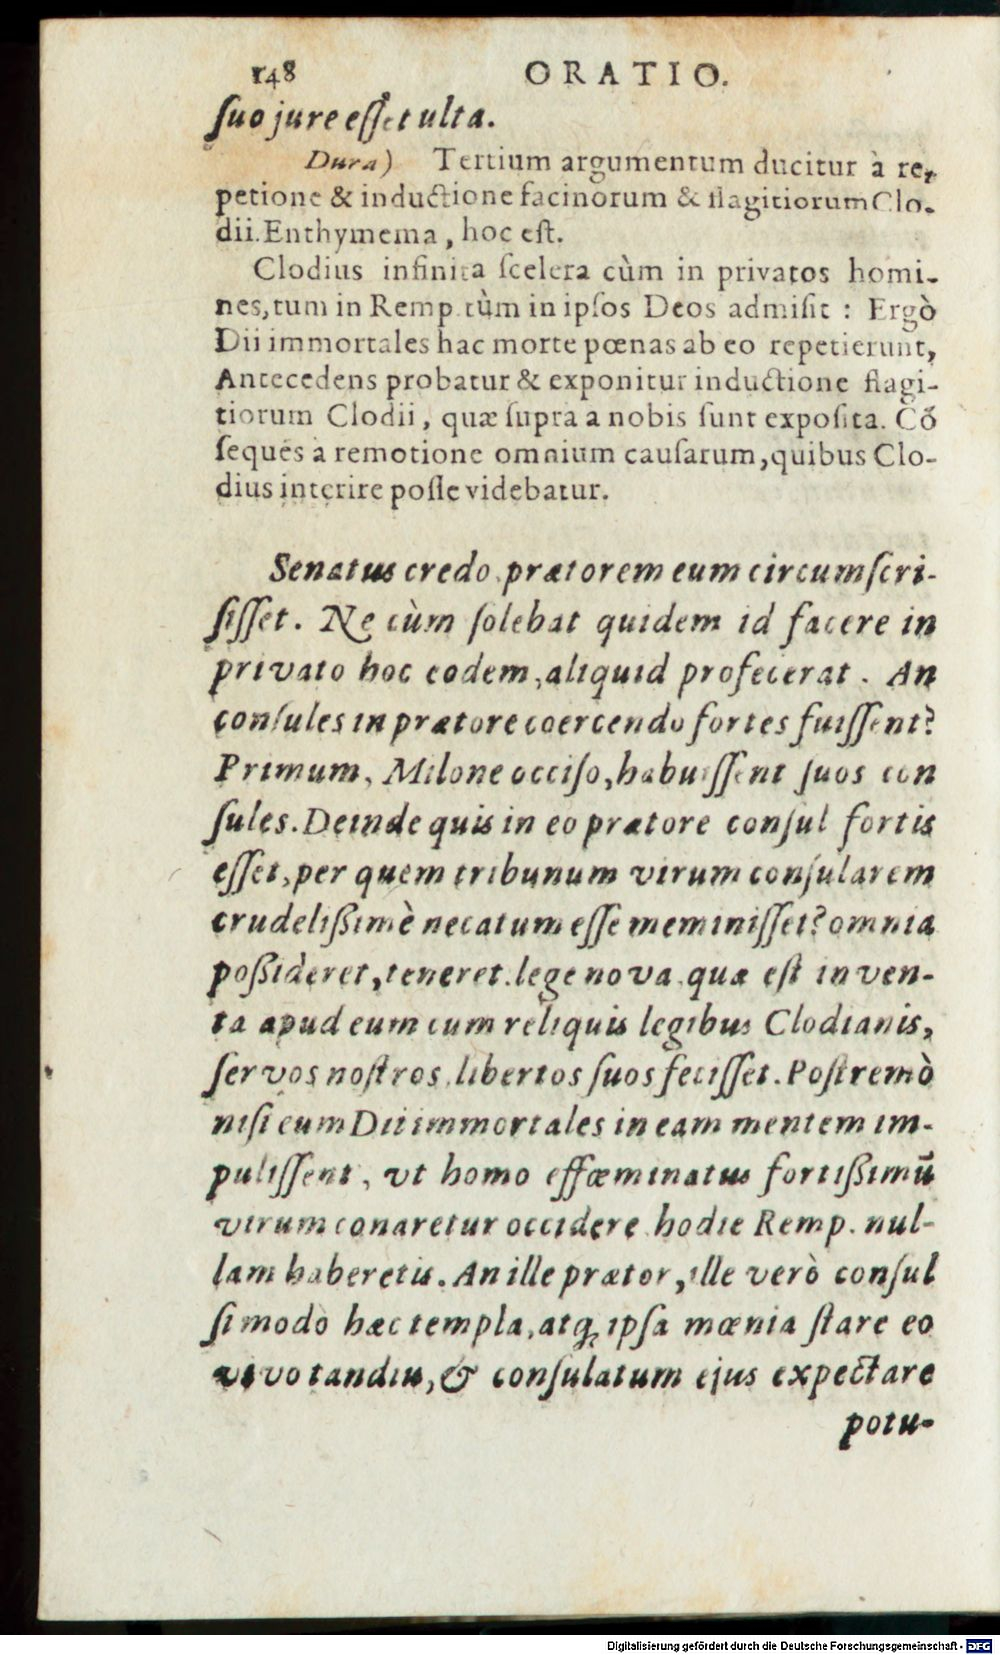 148 ORATIO.
ſuo jure eſſet ulta.
Dura) Tertium argumentum ducitur à re,
petione & inductione facinorum & flagitiorum Clo-
dii. Enthymema, hoc eſt.
Clodius infinita ſcelera cùm in privatos homi-
nes, tum in Remp. tùm in ipſos Deos admiſit : Ergò
Dii immortales hac morte pœnas ab eo repetierunt,
Antecedens probatur & exponitur inductione flagi-
tiorum Clodii, quæ ſupra a nobis ſunt expoſita. Cõ
ſequēs à remotione omnium cauſarum, quibus Clo-
dius interire poſſe videbatur.
Senatus credo prætorem eum circumſcri-
ſiſſet. Ne cùm ſolebat quidem id facere in
privato hoc eodem, aliquid profecerat. An
conſules in prætore coercendo fortes fuiſſent?
Primum, Milone occiſo, habuiſſent ſuos con
ſules. Deinde quis in eo prætore conſul fortis
eſſet, per quem tribunum virum conſularem
crudelißimè necatum eſſe meminiſſet? omnia
poßideret, teneret. lege nova quæ eſt inven-
ta apud eum cum reliquis legibus Clodianis,
ſervos noſtros libertos ſuos feciſſet. Poſtremò
niſi eum Dii immortales in eam mentem im-
puliſſent, vt homo effœminatus fortißimũ
virum conaretur occidere hodie Remp. nul-
lam haberetis. An ille prætor, ille verò conſul
ſi modò hæc templa, atq; ipſa mœnia ſtare eo
vivo tandiu, & conſulatum ejus expectare
potu-
Digitalisierung gefördert durch die Deutsche Forschungsgemeinschaft - DFG